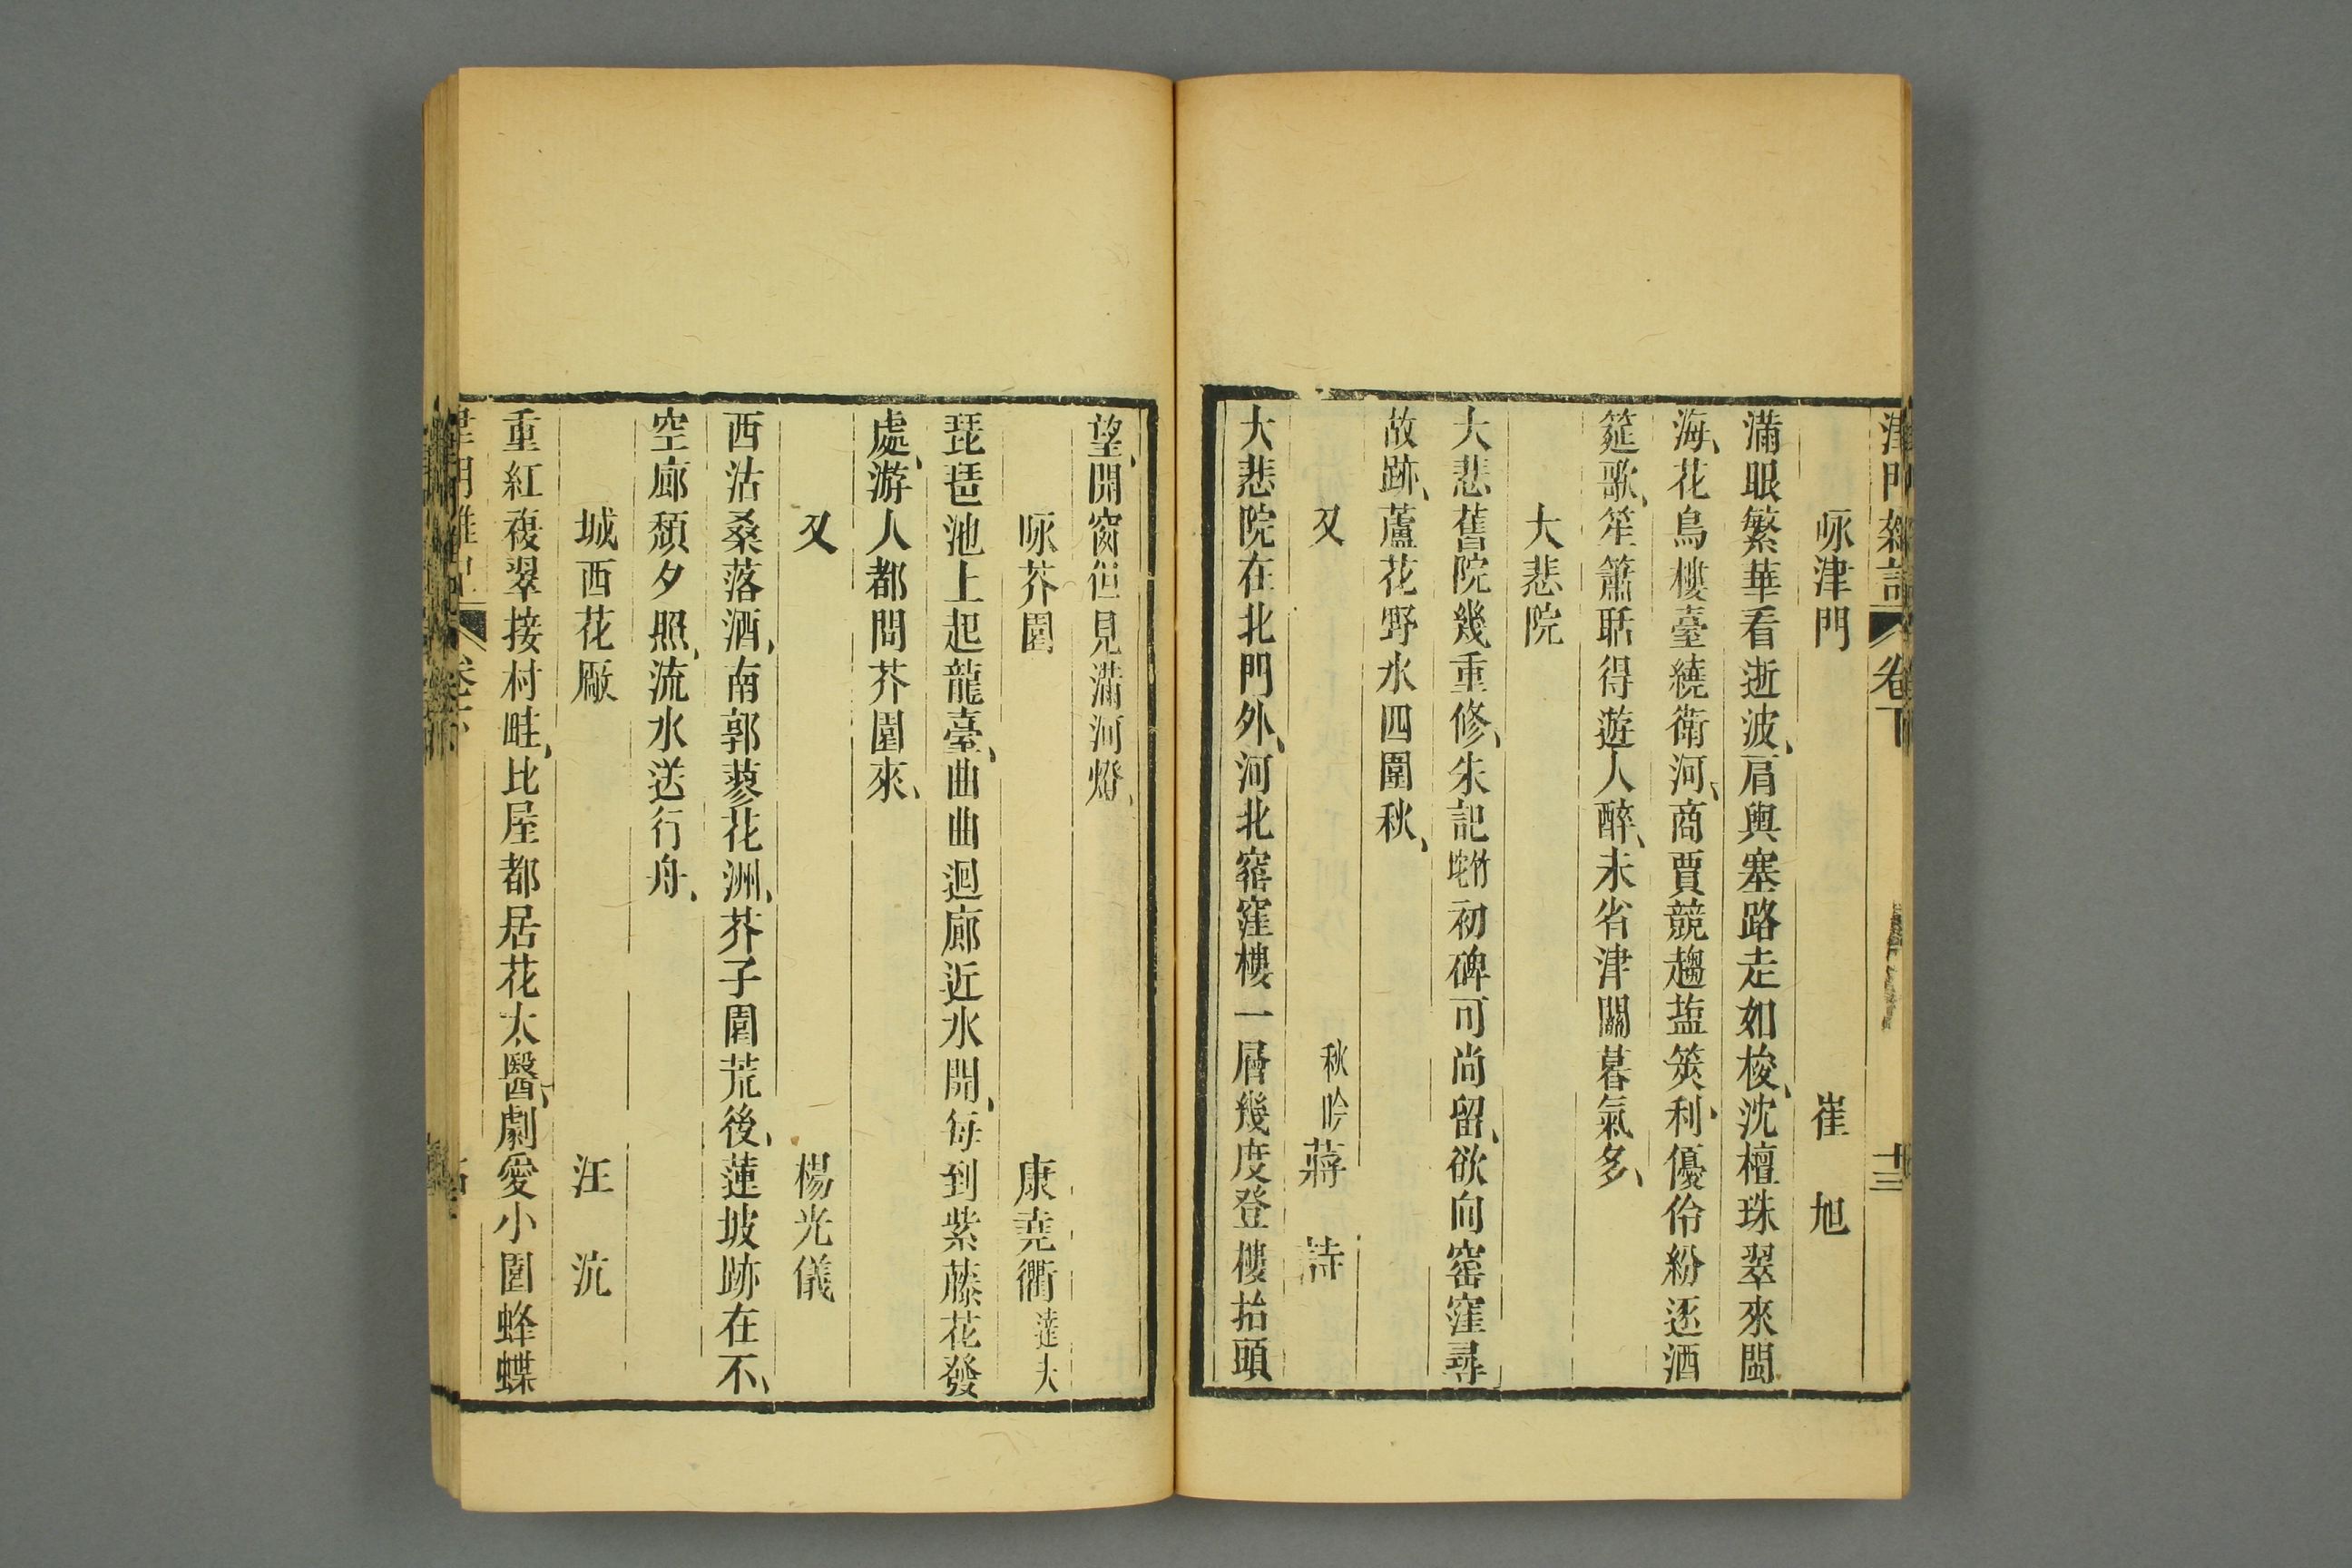 津門雜記 卷下 十三
咏津門 崔 旭
滿眼繁華看逝波、肩輿塞路走如梭、沈檀珠翠來閩
海、花鳥樓臺繞衛河、商賈競趨塩筴利、優伶紛逐酒
筵歌、笙簫聒得遊人醉、未省津關暮氣多、
大悲院
大悲舊院幾重修、朱記竹垞初碑可尚留、欲向窑窪尋
故跡、蘆花野水四圍秋、
又 秋吟蔣 詩
大悲院在北門外、河北窑窪樓一層幾度登樓抬頭
望、開窗但見滿河燈、
咏芥園 康堯衢達夫
琵琶池上起龍臺、曲曲迴廊近水開、每到紫藤花發
處、游人都問芥園來、
又 楊光儀
西沽桑落酒、南郭蓼花洲、芥子園荒後、蓮坡跡在不、
空廊頹夕照、流水送行舟、
城西花厰 汪 沆
重紅複翠接村畦、比屋都居花太醫、劇愛小園蜂蝶